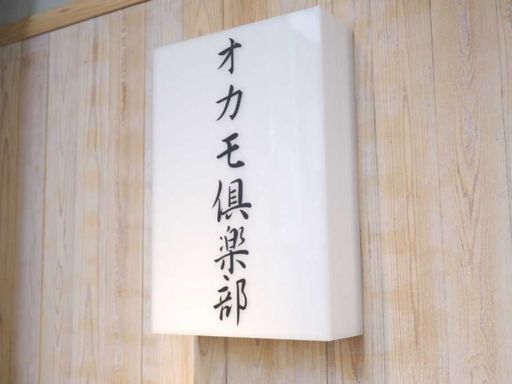 オカモ倶楽部